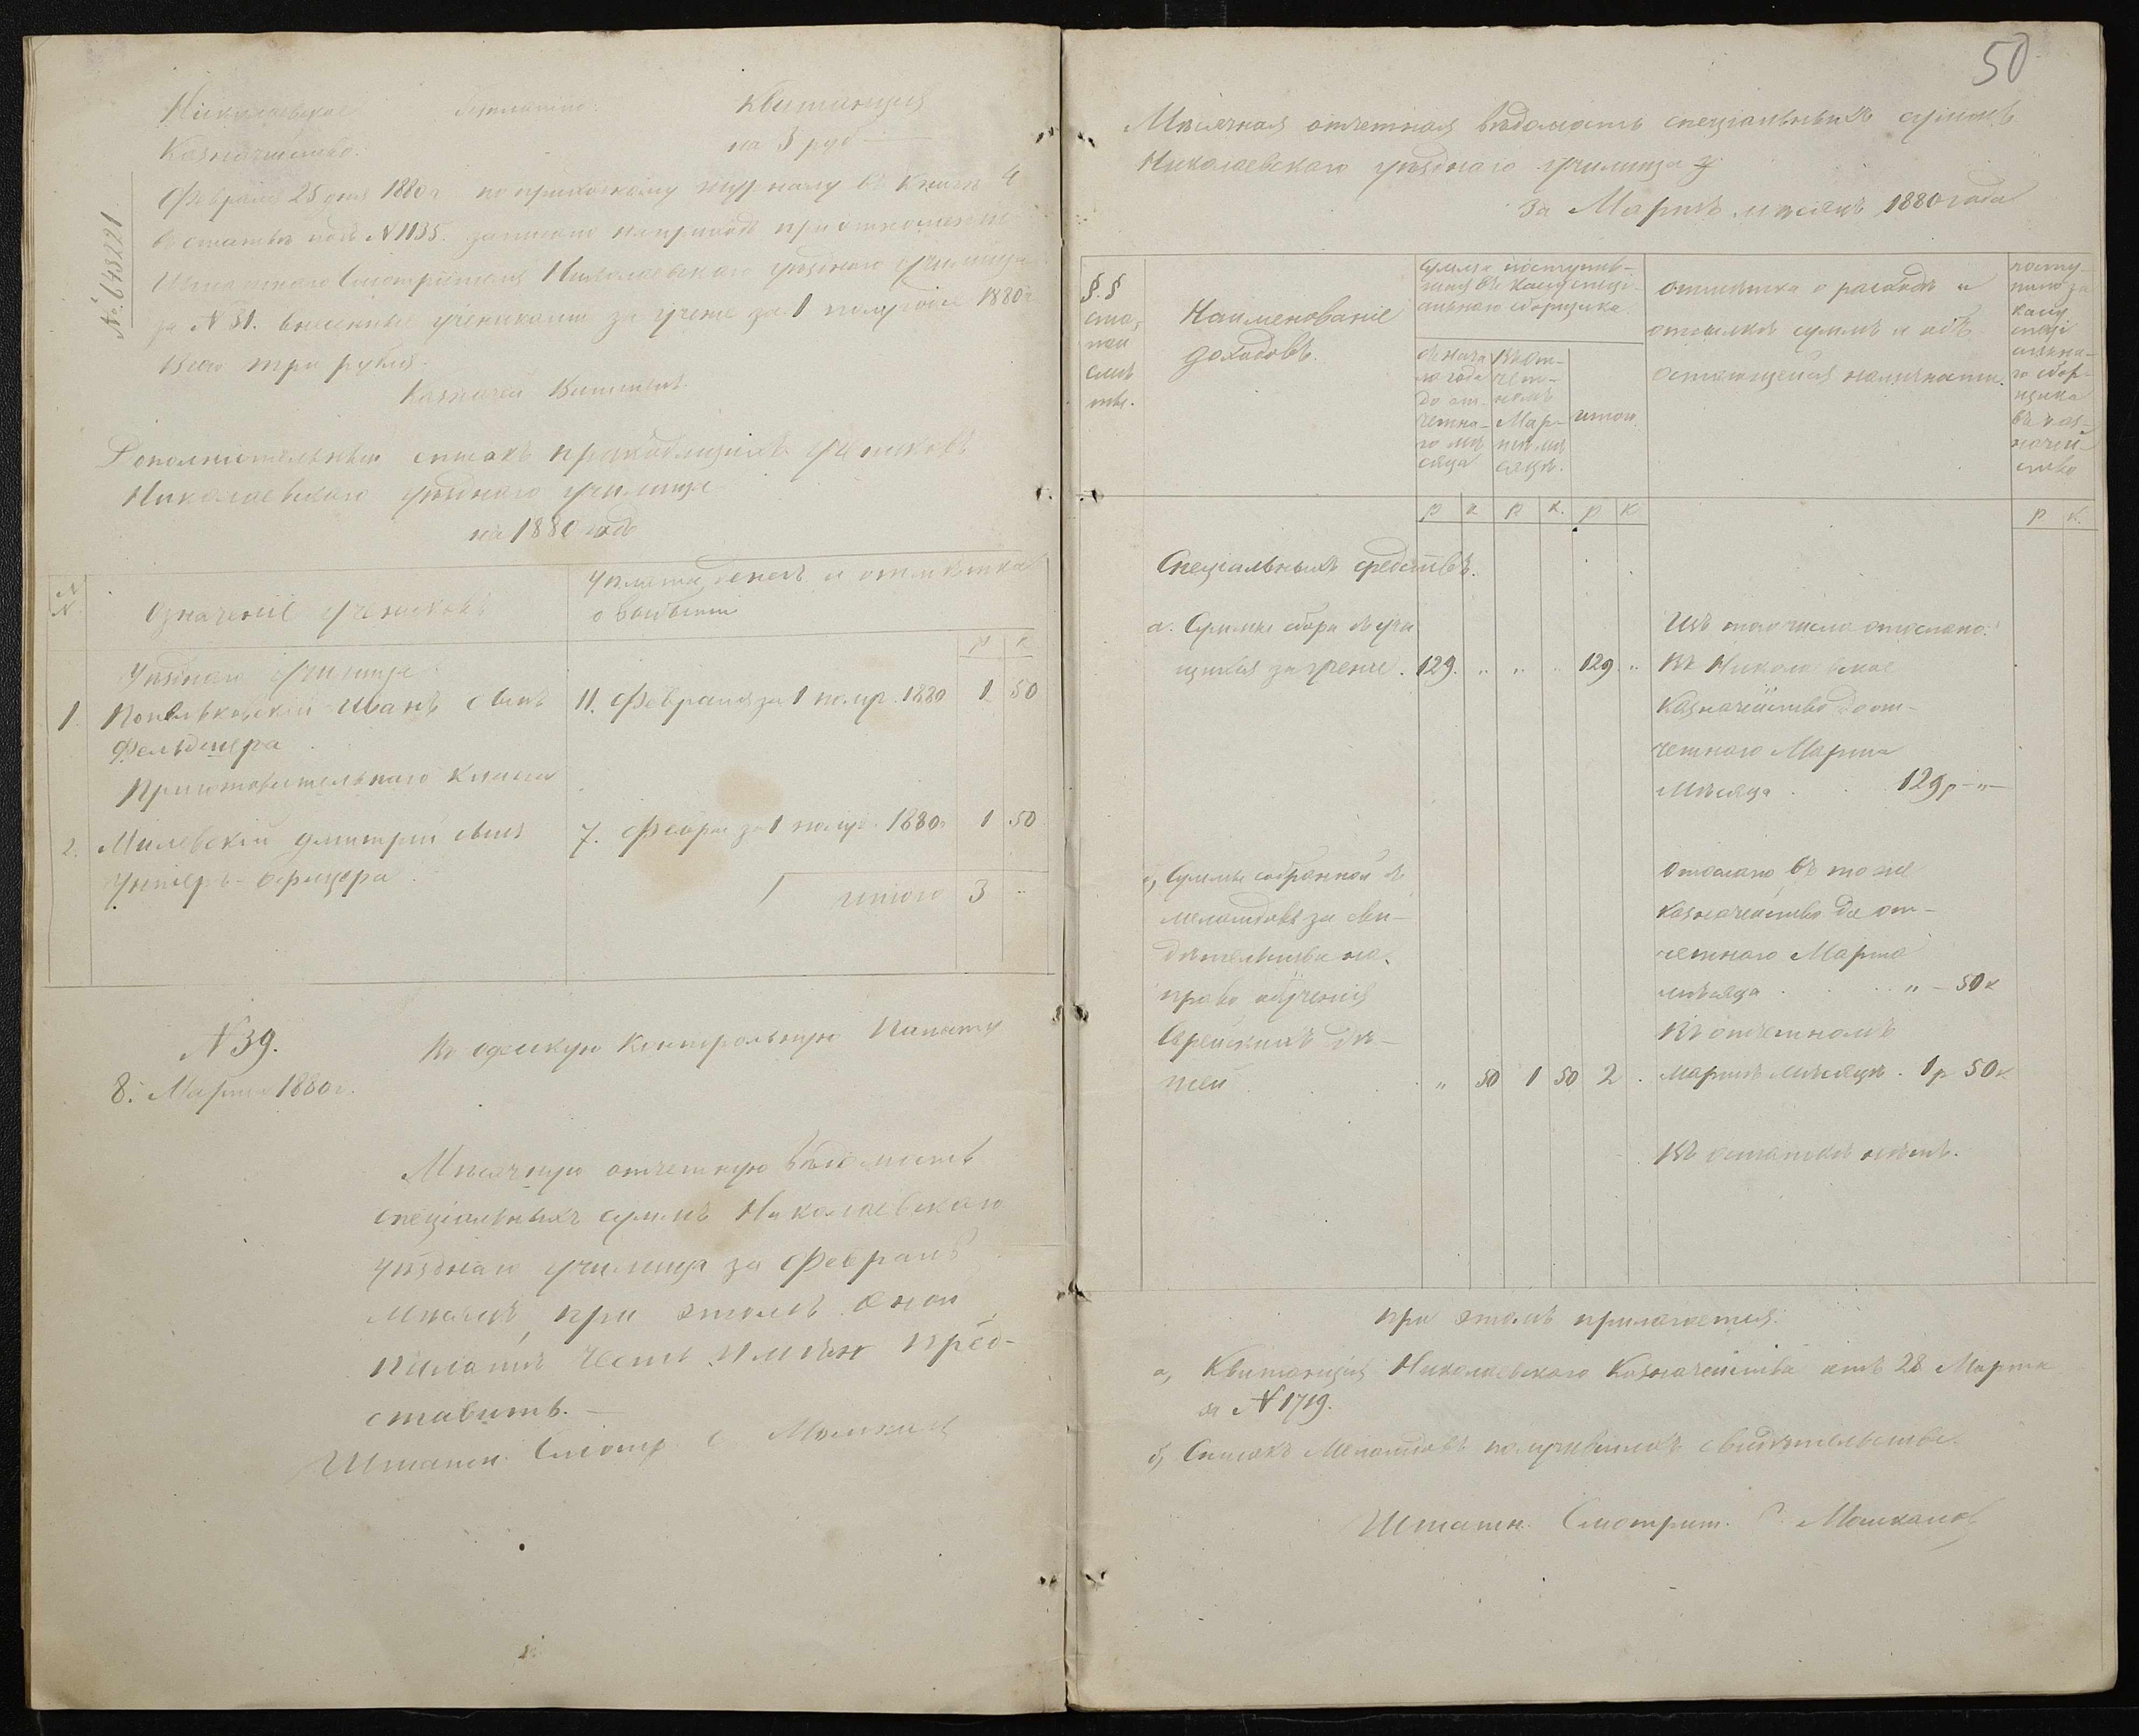 Николаевское Квитанция
Казначейство. на 3 руб
№ 648221
Февраля 25 дня 1880 г. по приходному журналу въ книгѣ 4
въ статьѣ подъ №1135. записано на приходъ при отношеніи
Штатнаго Смотрителя Николаевскаго уѣзднаго училища
за №31. внесенные учениками за ученіе за 1 полугодіе 1880 г.
всего три рубля.
Казначей
Дополнительный списокъ приходящихъ учениковъ
Николаевскаго уѣзднаго училища
на 1880 годъ
№ №
Означеніе учениковъ
Уплата денегъ и отмѣтка
о выбытіи
р к
Уѣзднаго училища
1. Иванъ сынъ 11. Февраля за 1 полуг. 1880 1 50
Фельдшера
Приготовительнаго класса
2. Милевскій Дмитрій сынъ 7. Февра за 1 полуг. 1880 г 1 50
Унтеръ-офицера
итого 3 "
№39.
8. Марта 1880 г.
Въ Одескую Контрольную Палату
Мѣсячную отчетную вѣдомость
спеціальныхъ суммъ Николаевскаго
уѣзднаго училища за Февраль
мѣсяцъ, при этомъ оной
Палатѣ честь имѣю пред-
ставить. —
Штатн. Смотр. С Мошкалов
50
Мѣсячная отчетная вѣдомость спеціальныхъ суммъ
Николаевскаго уѣзднаго училища
За Мартъ мѣсяцъ 1880 года
§.§
ста-
теи
смѣ
ты.
Наименованіе
доходовъ.
сумма поступив-
шая въ кассу спеці-
альнаго сборщика
съ нача
ла года
до от-
четна-
го мѣ
сяца
въ от-
чет-
номъ
Мар-
тѣ мѣ
сяцѣ.
итого
отмѣтка о расходѣ и
отсылкѣ суммъ и объ
остающейся наличности.
посту-
пило за
кассу
спеці
ально-
го сбор-
щика
въ каз-
начей-
ство
р к р к. р к р к.
Спеціальныхъ средствъ.
а. Суммы сбора съ уча
щихся за ученіе. 129. " " " 129 "
Изъ того числа отослано:
въ Николаевское
Казначейство до от-
четнаго Марта
мѣсяца . . 129 р — " —
б, Суммы собранной съ
меламдовъ за сви-
дѣтельства на
право обученія
Еврейскихъ дѣ-
тей . " 50 1 50 2 .
отослано въ то же
Казначейство до от-
четнаго Марта
мѣсяца . . . " — 50 к
Въ отчетномъ
мартѣ мѣсяцѣ . 1 р 50 к
Въ остаткѣ нѣтъ.
при этомъ прилагается:
а, Квитанція Николаевскаго Казначейства отъ 28 Марта
за №1719.
б, Списокъ Меламдовъ получившихъ свидѣтельства.
Штатн. Смотрит. С Мошкалов